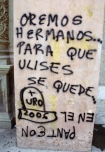 OREMOS
HERMANOS...
PARA QUE
ULISES
SE QUEDE...
EN EL
PANTEON
+
URO
2005